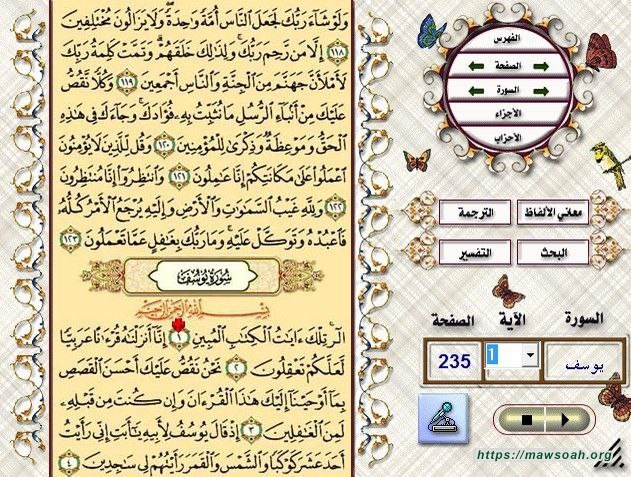 وَلَوْ شَآءَ رَبُّكَ لَجَعَلَ ٱلنَّاسَ أُمَّةً وَٰحِدَةً ۖ وَلَا يَزَالُونَ مُخْتَلِفِينَ
﴿١١٨﴾ إِلَّا مَن رَّحِمَ رَبُّكَ ۚ وَلِذَٰلِكَ خَلَقَهُمْ ۗ وَتَمَّتْ كَلِمَةُ رَبِّكَ
لَأَمْلَأَنَّ جَهَنَّمَ مِنَ ٱلْجِنَّةِ وَٱلنَّاسِ أَجْمَعِينَ ﴿١١٩﴾ وَكُلًّا نَّقُصُّ
عَلَيْكَ مِنْ أَنۢبَآءِ ٱلرُّسُلِ مَا نُثَبِّتُ بِهِۦ فُؤَادَكَ ۚ وَجَآءَكَ فِى هَٰذِهِ
ٱلْحَقُّ وَمَوْعِظَةٌ وَذِكْرَىٰ لِلْمُؤْمِنِينَ ﴿١٢٠﴾ وَقُل لِّلَّذِينَ لَا يُؤْمِنُونَ
ٱعْمَلُوا۟ عَلَىٰ مَكَانَتِكُمْ إِنَّا عَٰمِلُونَ ﴿١٢١﴾ وَٱنتَظِرُوٓا۟ إِنَّا مُنتَظِرُونَ
﴿١٢٢﴾ وَلِلَّهِ غَيْبُ ٱلسَّمَٰوَٰتِ وَٱلْأَرْضِ وَإِلَيْهِ يُرْجَعُ ٱلْأَمْرُ كُلُّهُۥ
فَٱعْبُدْهُ وَتَوَكَّلْ عَلَيْهِ ۚ وَمَا رَبُّكَ بِغَٰفِلٍ عَمَّا تَعْمَلُونَ ﴿١٢٣﴾
سُورَةُ يُوسُفَ
بِسْمِ ٱللَّهِ ٱلرَّحْمَٰنِ ٱلرَّحِيمِ
الٓر ۚ تِلْكَ ءَايَٰتُ ٱلْكِتَٰبِ ٱلْمُبِينِ ﴿١﴾ إِنَّآ أَنزَلْنَٰهُ قُرْءَٰنًا عَرَبِيًّا
لَّعَلَّكُمْ تَعْقِلُونَ ﴿٢﴾ نَحْنُ نَقُصُّ عَلَيْكَ أَحْسَنَ ٱلْقَصَصِ
بِمَآ أَوْحَيْنَآ إِلَيْكَ هَٰذَا ٱلْقُرْءَانَ وَإِن كُنتَ مِن قَبْلِهِۦ
لَمِنَ ٱلْغَٰفِلِينَ ﴿٣﴾ إِذْ قَالَ يُوسُفُ لِأَبِيهِ يَٰٓأَبَتِ إِنِّى رَأَيْتُ
أَحَدَ عَشَرَ كَوْكَبًا وَٱلشَّمْسَ وَٱلْقَمَرَ رَأَيْتُهُمْ لِى سَٰجِدِينَ ﴿٤﴾
الفهرس
الصفحة
السورة
الأجزاء
الأحزاب
معاني الألفاظ
الترجمة
البحث
التفسير
السورة الآية الصفحة
يوسف 1 235
https://mawsoah.org